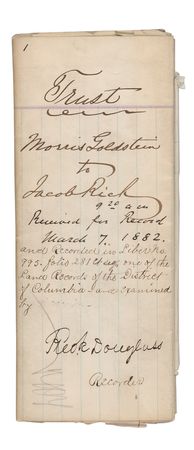 1
Trust
Morris Goldstein
to
Jacob Rich
9 20 a.m.
Received for Record
March 7. 1882.
and Recorded in Liber No.
995. folio 281 et seq. one of the
Land Records of the District
of Columbia and examined
by
Fredk Douglass
Recorder